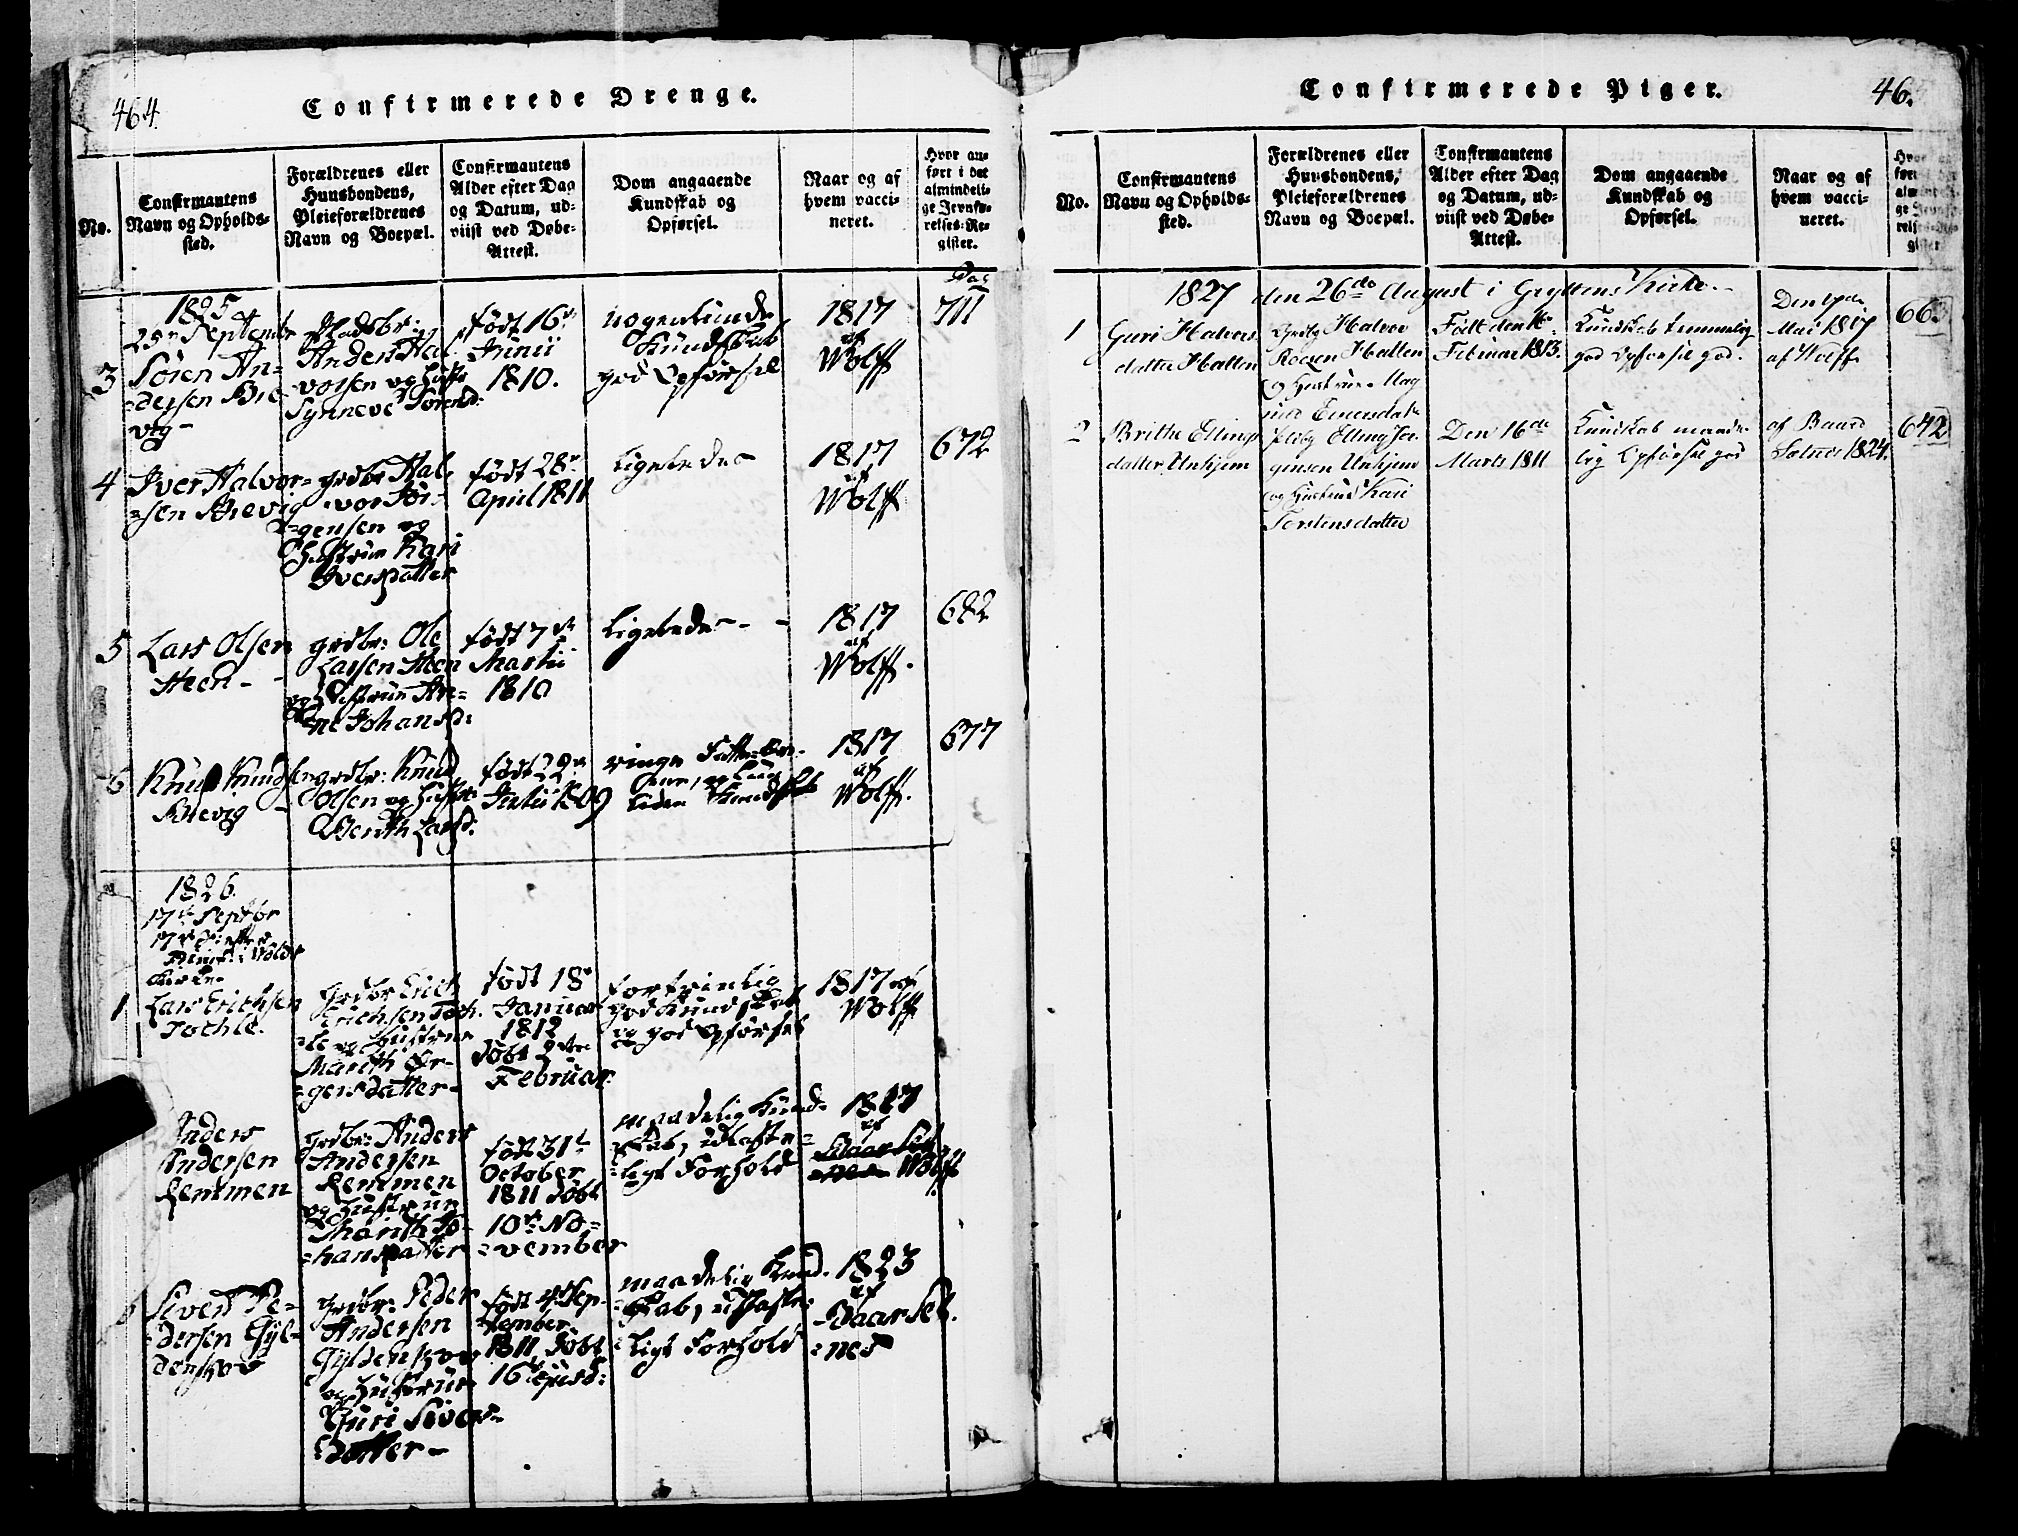 464.
Confirmerede Drenge.
No.
Confirmantens
Navn og Opholds-
sted.
Forældrenes eller
Huusbondens,
Pleieforældrenes
Navn og Boepæl.
Confirmantens
Alder efter Dag
og Datum, ud-
viist ved Døbe-
Attest.
Dom angaaende
Kundskab og
Opførsel.
Naar og af
hvem vacci-
neret.
Hvor an-
ført i det
almindeli-
ge Jevnfø-
relses-Re-
gister.
Pag
1825
25 Septembr
3
Søren An-
dersen Bre-
vig-
Anders Hal-
vorsen og
Synneve Sørensd:
født 16
Junii
1810.
nogenlunde
Kundskab
god Opførsel
1817
af
Wolff
711
4
Iver Halvor-
sen Brevig
grdbr Hal-
vor Jør-
gensen og
Hustrue Kari
Iversdatter
født 28
April 1811
Ligeledes
1817
af
Wolff
672
5
Lars Olsen
Steen -
grdbr: Ole
Larsen Steen
og Hustrue An-
ne Johansd:
født 7
Martii
1810
Ligeledes -
1817
af
Wolff.
682
6
Knud Knudsen
Brevig -
grdbr: Knud
Olsen og
Berith Larsd:
født 22
1809
ringe
liden Kundskab
1817
af
Wolff.
677
1826.
17 Septbr
1
Lars Erichsen
Tochle.
Grdbr Erich
Erichsen Toch-
le og Hustrue
Marith Ør-
gensdatter -
født 18
Januar
1812
døbt 2
Februar.
fortrinlig
god Kundskab
og god Opførsel
1817 af
Wolff
Anders
Andersen
Lemmen
grdbr: Anders
Andersen
Lemmen
og Hustrue
Marith Jo-
hansdatter
født 31
October
1811 døbt
10 No-
vember
maadelig Kund-
skab, ulaste-
ligt Forhold
1817
af
Wolff
Sivert Pe-
dersen Gyl-
denskov
Grdbr: Peder
Andersen
Gyldenskov
og Hustrue
Guri Sivers-
datter -
født 4 Sep-
tember
1811 døbt
16
maadelig Kund-
skab, ulaste-
ligt Forhold
1823
af
Baar Set-
nes
Confirmerede Piger.
46.
No.
Confirmantens
Navn og Opholds-
sted.
Forældrenes eller
Huusbondens,
Pleieforældrenes
Navn og Boepæl.
Confirmantens
Alder efter Dag
og Datum, ud-
viist ved Døbe-
Attest.
Dom angaaende
Kundskab og
Opførsel.
Naar og af
hvem vacci-
neret.
1827 den 26de August i Gryttens Kirke.
1
Guri Halvors
datter Hatten
Halvor
Hatten
og Hustrue
Født den
Februar 1813.
Kundskab temmelig
god Opførsel god.
Den
Mai 1817
af Wolff
66
2
Brithe Ellings
datter Unhjem
Elling Jør-
gensen Unhjem
og Hustrue Kari
Torstensdatter
Den 16de
Marts 1811
Kundskab maade-
lig Opførsel god
af Baard
Setnes 1824.
642